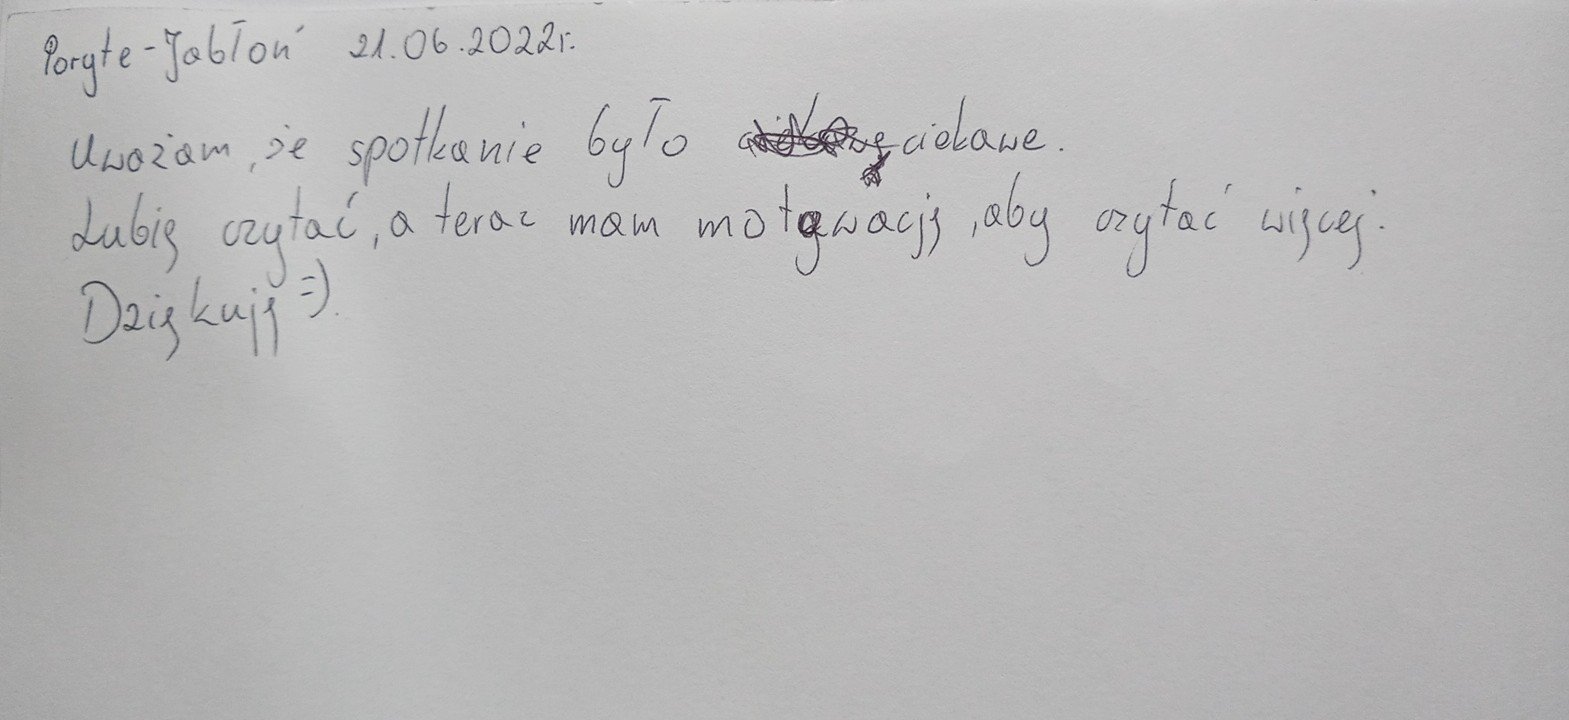 Poryte-Jabłoń 21.06.2022r.
Uważam, że spotkanie było ciekawe.
Lubię czytać, a teraz mam motywację, aby czytać więcej.
Dziękuję =).